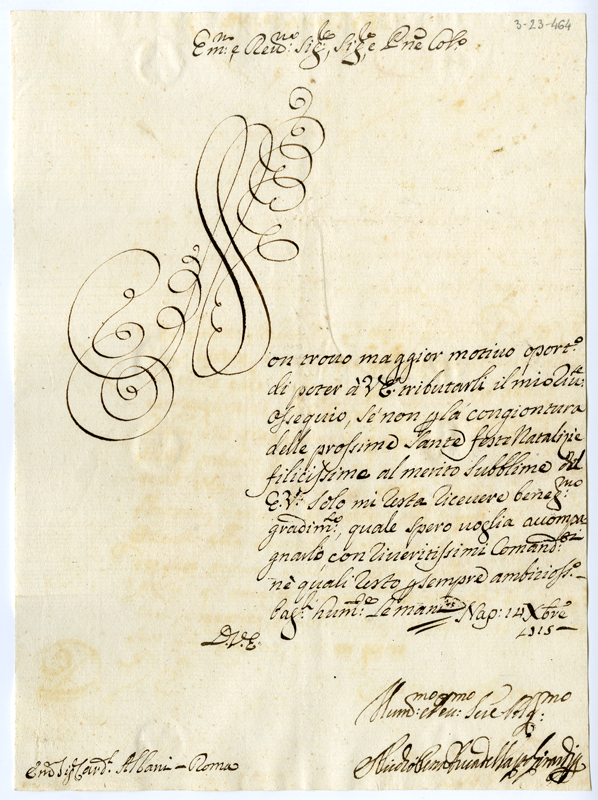 3-23-464
Em.mo e Reu.mo Sig.re, Sig.re e Pne Col.mo
Non trouo maggior motiuo oport.o
di poter à V.E. tributarli il mio
ossequio, se non p la congiontura
delle prossime Sante feste Natalizie
filicissime al merito Subblime del
E.V. Solo mi resta riceuere benig.mo
gradim.to, quale spero voglia accompa
gnarlo con riueritissimi Comand.ti
nè quali resto p sempre ambizioss.o
bag.o hum.te le mani Nap: 14 Xbre
1715
D.V.E.
Hum.mo Seru
Card.l Albani = Roma